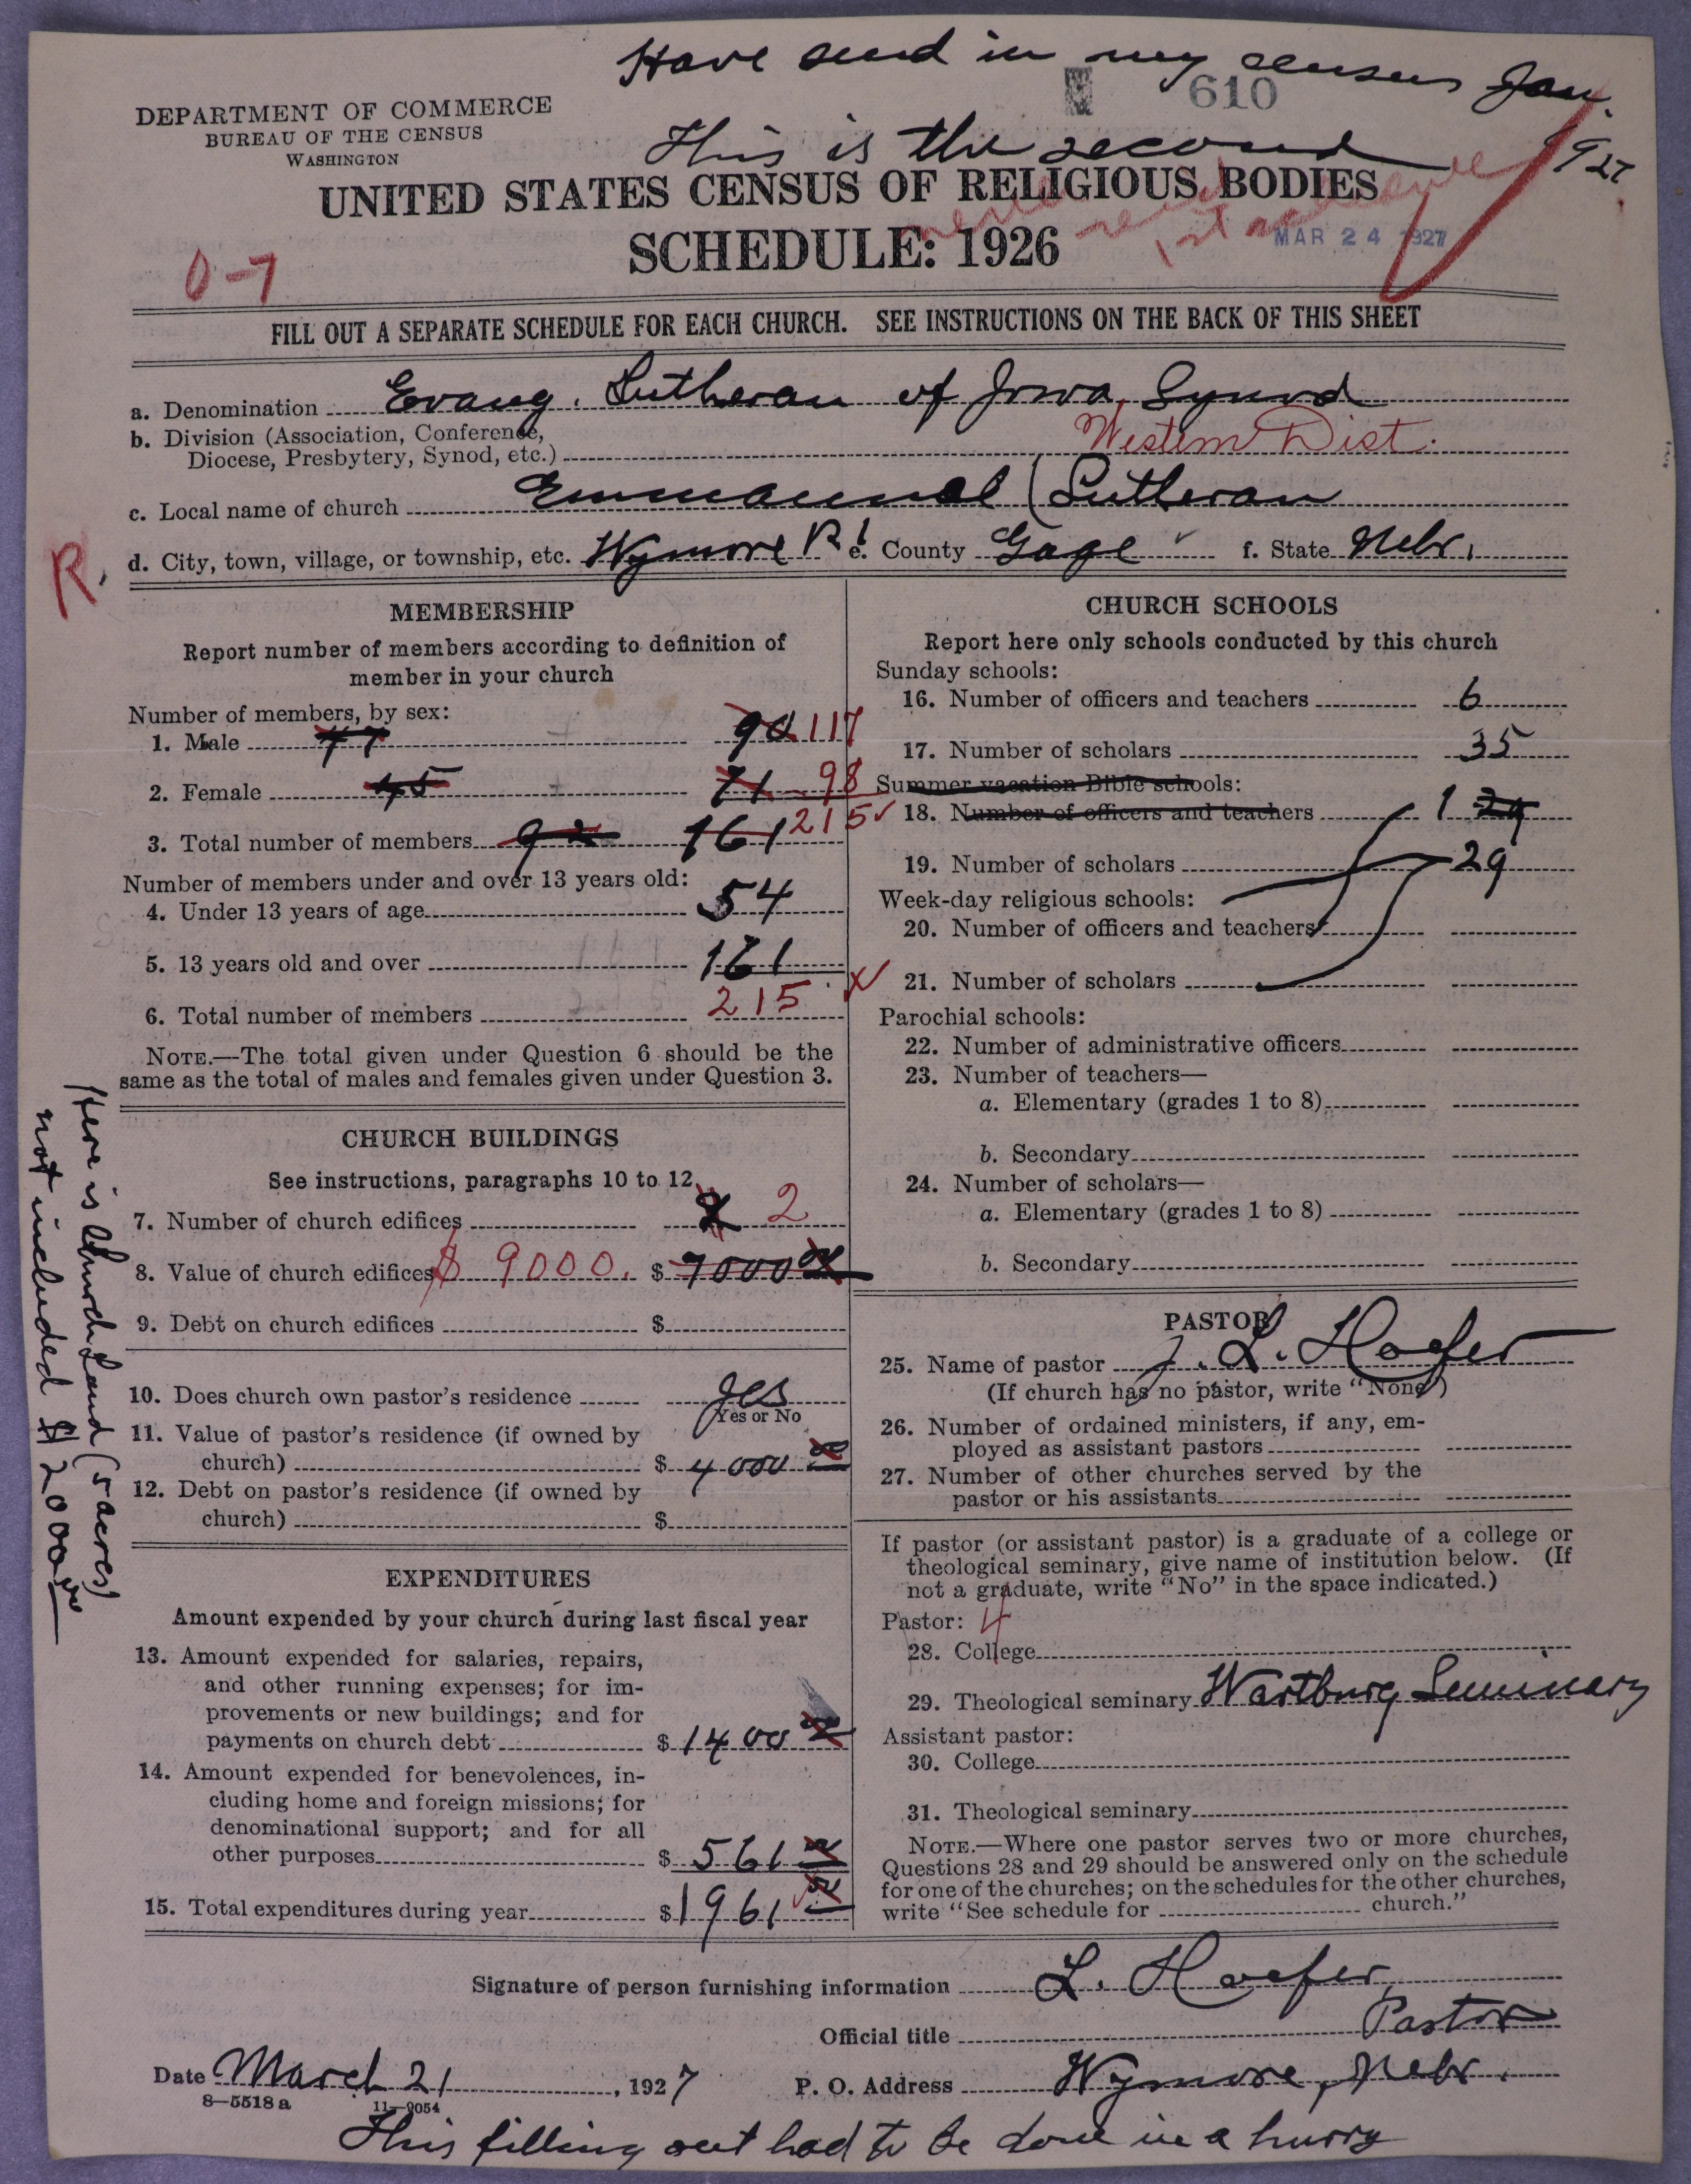 Have send in my census Jan. 1927
610
This is the second
DEPARTMENT OF COMMERCE
BUREAU OF THE CENSUS
WASHINGTON
UNITED STATES CENSUS OF RELIGIOUS BODIES
SCHEDULE: 1926
MAR 24 1927
0-7
FILL OUT A SEPARATE SCHEDULE FOR EACH CHURCH. SEE INSTRUCTIONS ON THE BACK OF THIS SHEET
a. Denomination Evang. Lutheran of Iowa Synod
b. Division (Association, Conference,
Diocese, Presbytery, Synod, etc.) Western Dist.
c. Local name of church Emmanuel (Lutheran
d. City, town, village, or township, etc. Wymore R1 e. County Gage f. State Nebr.
R.
MEMBERSHIP
Report number of members according to definition of
member in your church
Number of members, by sex:
1. Male 47 90 117
2. Female 45 71 98
3. Total number of members 92 161 215
Number of members under and over 13 years old:
4. Under 13 years of age 54
5. 13 years old and over 161
6. Total number of members 215
NOTE.—The total given under Question 6 should be the
same as the total of males and females given under Question 3.
CHURCH BUILDINGS
See instructions, paragraphs 10 to 12
7. Number of church edifices 2
8. Value of church edifices $ 9000. $ 7000
9. Debt on church edifices $
10. Does church own pastor's residence Yes
Yes or No
11. Value of pastor's residence (if owned by
church) $ 4000
12. Debt on pastor's residence (if owned by
church) $
Here is Church Land (5 acres)
not included $ 2000
EXPENDITURES
Amount expended by your church during last fiscal year
13. Amount expended for salaries, repairs,
and other running expenses; for im-
provements or new buildings; and for
payments on church debt $ 1400
14. Amount expended for benevolences, in-
cluding home and foreign missions; for
denominational support; and for all
other purposes $ 561
15. Total expenditures during year $ 1961
CHURCH SCHOOLS
Report here only schools conducted by this church
Sunday schools:
16. Number of officers and teachers 6
17. Number of scholars 35
Summer vacation Bible schools:
18. Number of officers and teachers 1 29
19. Number of scholars 29
Week-day religious schools:
20. Number of officers and teachers
21. Number of scholars
Parochial schools:
22. Number of administrative officers
23. Number of teachers—
a. Elementary (grades 1 to 8)
b. Secondary
24. Number of scholars—
a. Elementary (grades 1 to 8)
b. Secondary
PASTOR
25. Name of pastor J. L. Hoefer
(If church has no pastor, write "None")
26. Number of ordained ministers, if any, em-
ployed as assistant pastors
27. Number of other churches served by the
pastor or his assistants
If pastor (or assistant pastor) is a graduate of a college or
theological seminary, give name of institution below. (If
not a graduate, write "No" in the space indicated.)
Pastor: 4
28. College
29. Theological seminary Wartburg Seminary
Assistant pastor:
30. College
31. Theological seminary
NOTE.—Where one pastor serves two or more churches,
Questions 28 and 29 should be answered only on the schedule
for one of the churches; on the schedules for the other churches,
write "See schedule for church."
Signature of person furnishing information L. Hoefer
Official title Pastor
Date March 21, 1927 P. O. Address Wymore, Nebr.
8—5518 a 11—9054
This filling out had to be done in a hurry